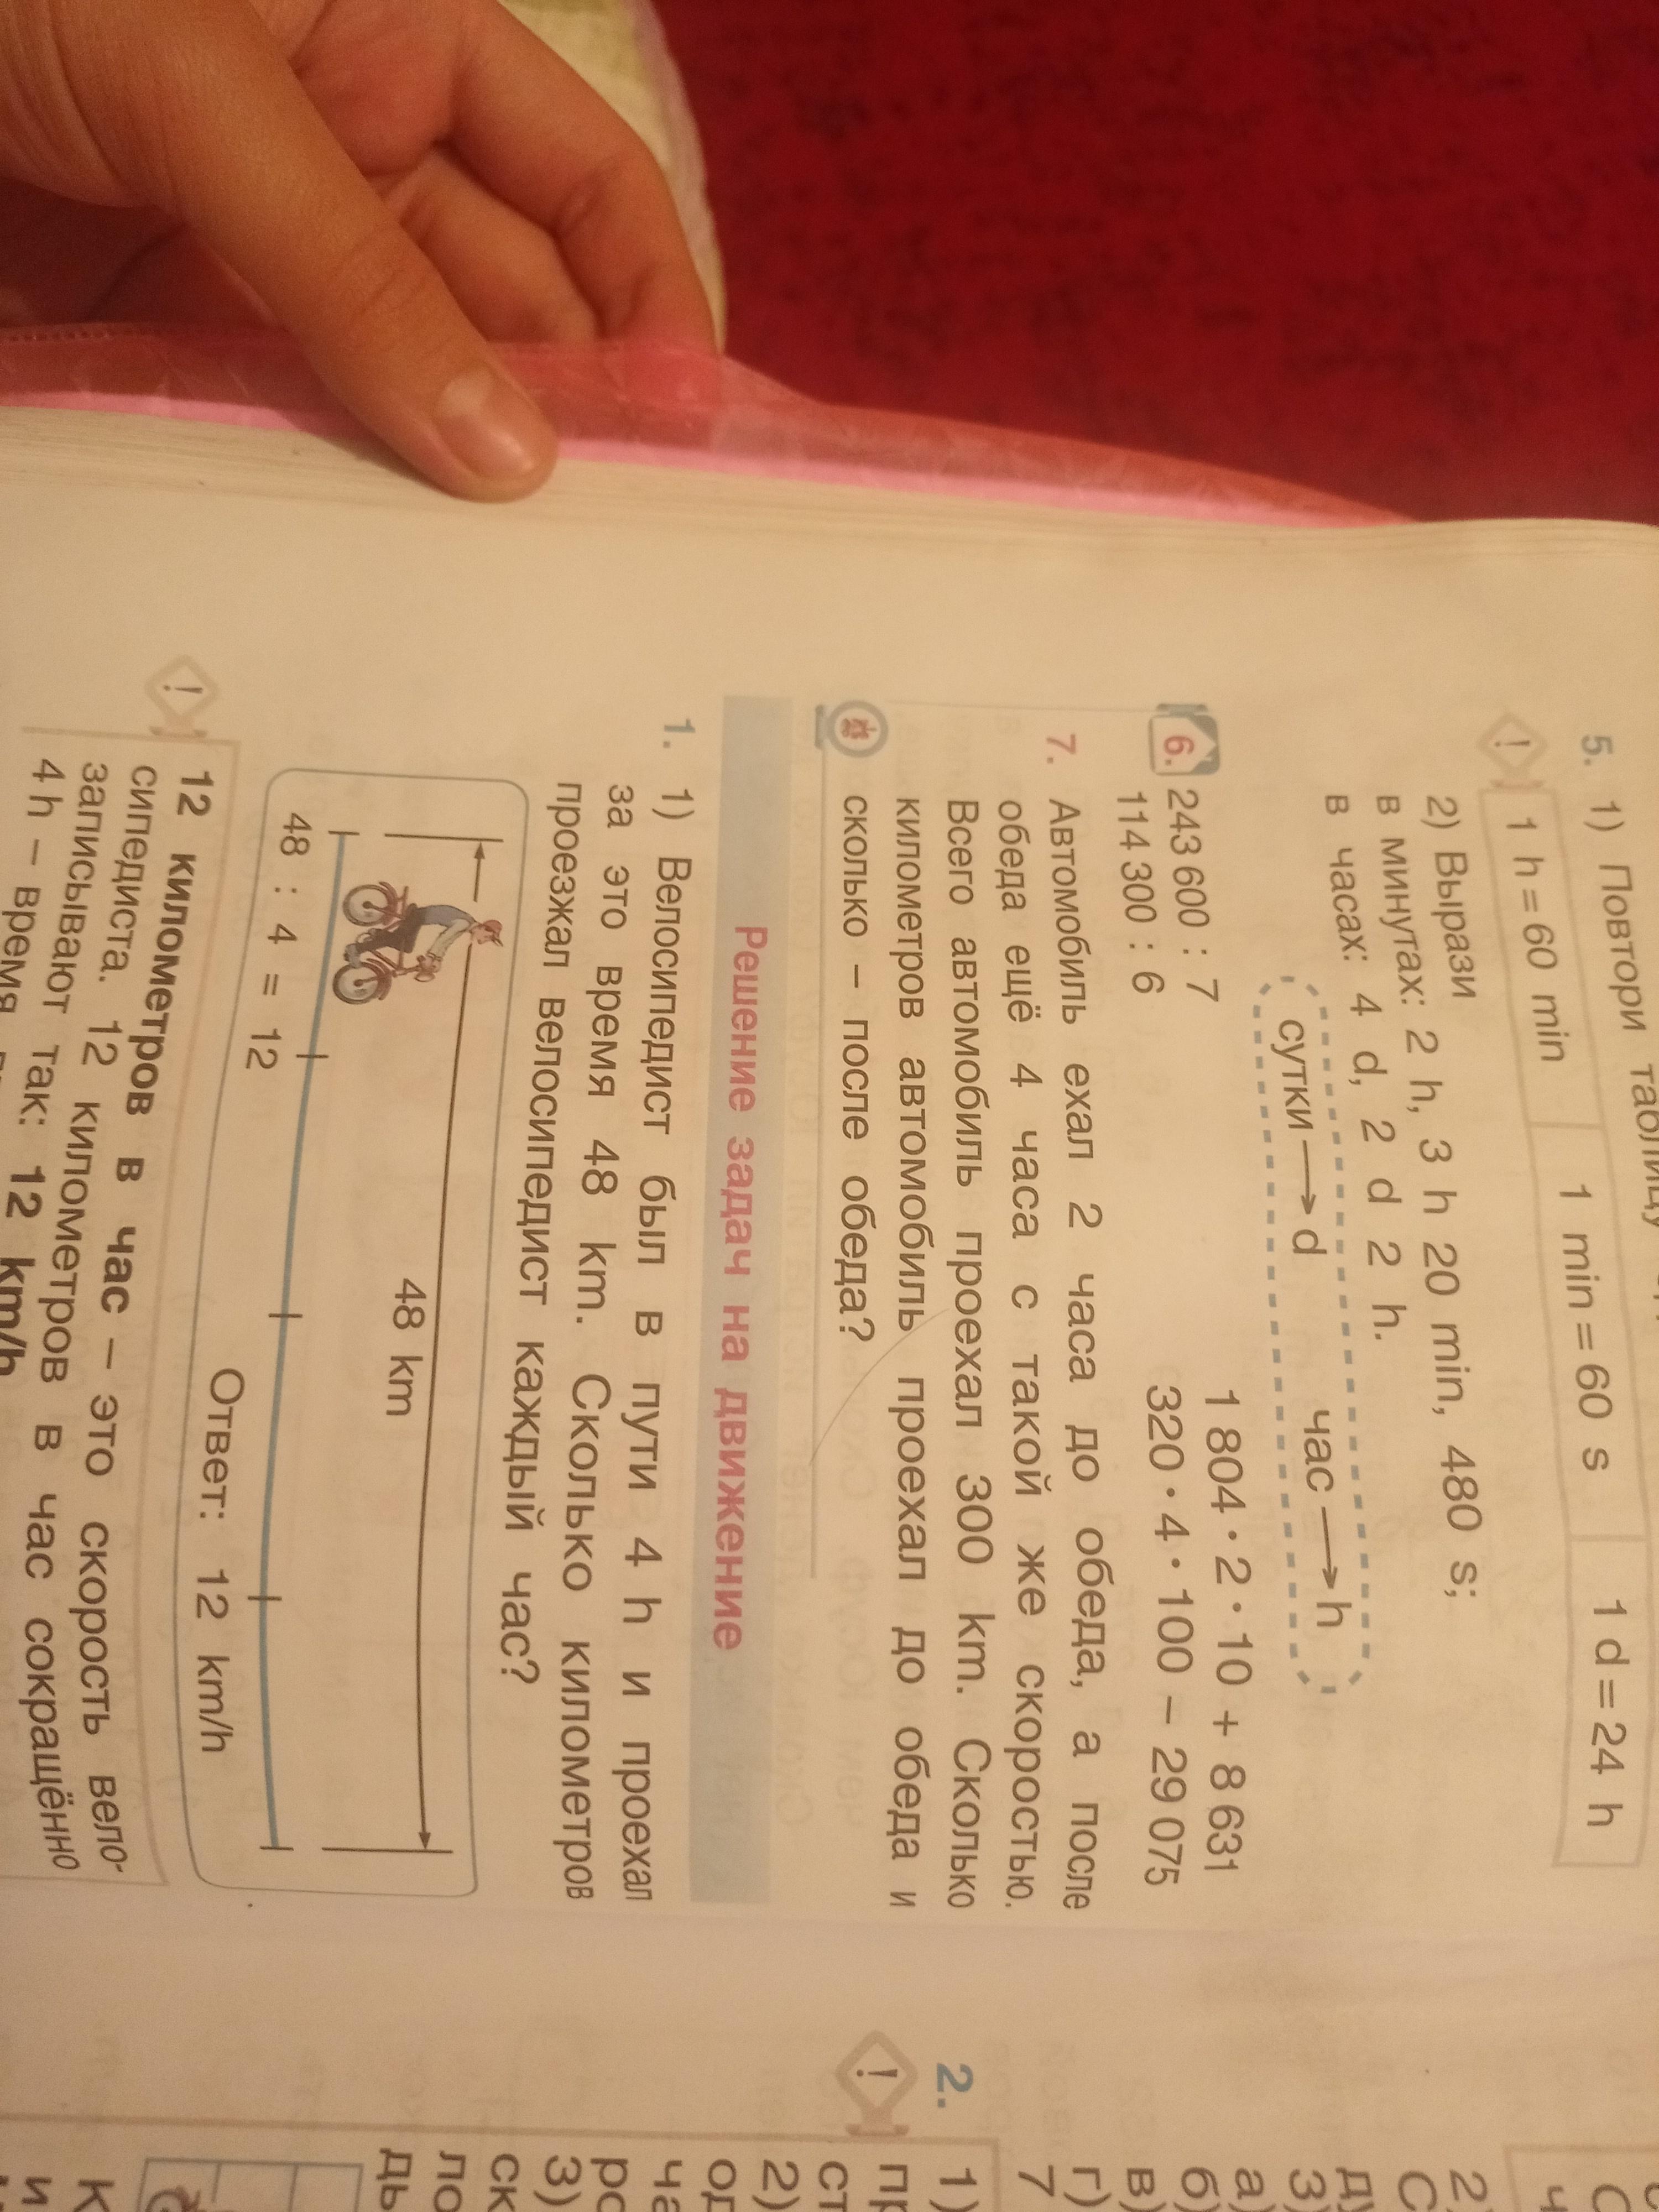 5. 1) Повтори таблицу
1 h = 60 min 1 min = 60 s 1 d = 24 h
2) Вырази
в минутах: 2 h, 3 h 20 min, 480 s;
в часах: 4 d, 2 d 2 h.
сутки → d час → h
6. 243 600 : 7 1 804 · 2 · 10 + 8 631
114 300 : 6 320 · 4 · 100 − 29 075
7. Автомобиль ехал 2 часа до обеда, а после
обеда ещё 4 часа с такой же скоростью.
Всего автомобиль проехал 300 km. Сколько
километров автомобиль проехал до обеда и
сколько – после обеда?
Решение задач на движение
1. 1) Велосипедист был в пути 4 h и проехал
за это время 48 km. Сколько километров
проезжал велосипедист каждый час?
48 km
48 : 4 = 12
Ответ: 12 km/h
12 километров в час – это скорость вело-
сипедиста. 12 километров в час сокращённо
записывают так: 12 km/h
4 h – время
2. 1)
2)
3)
а)
б)
в)
г)
7